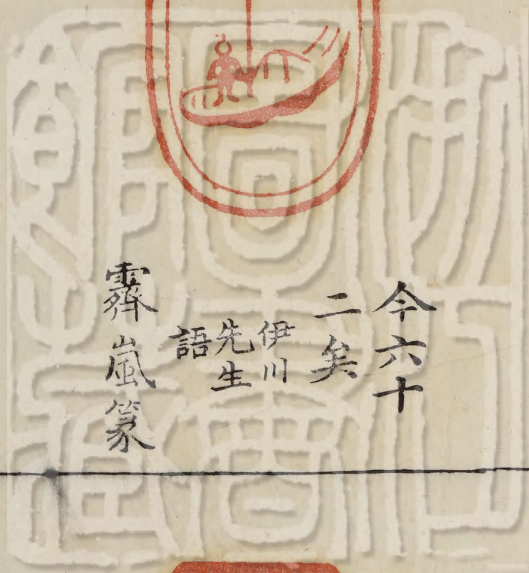 今六十
二矣
伊川
先生
語
霽嵐篆